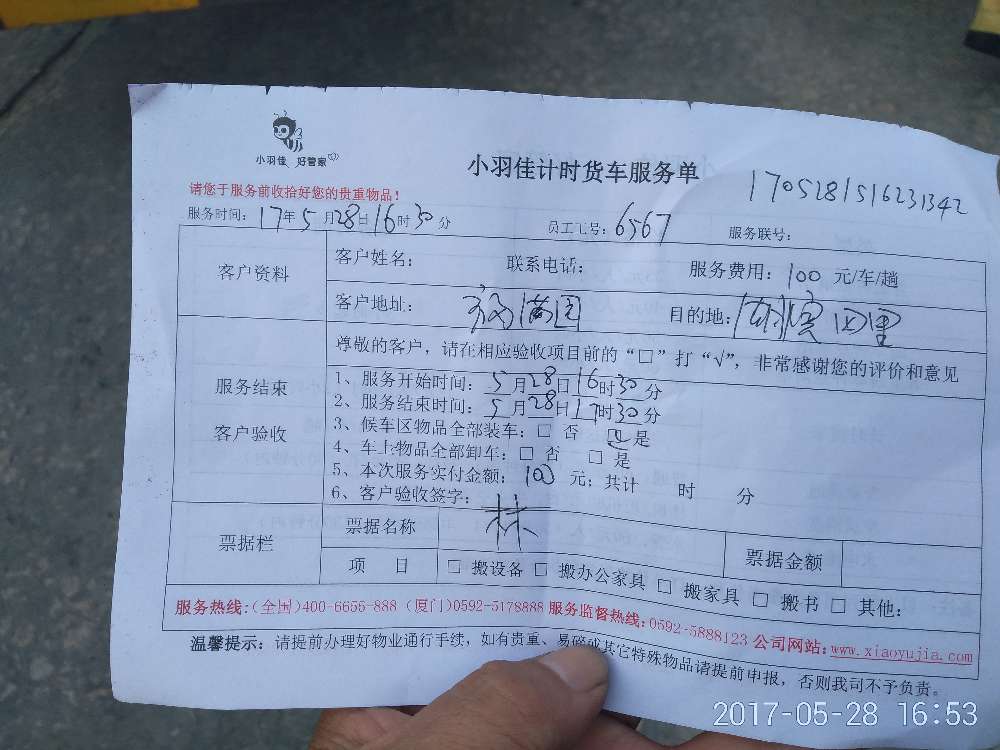 小羽佳 好管家
小羽佳计时货车服务单
1705281516231342
请您于服务前收拾好您的贵重物品！
服务时间：17年5月28日16时30分 员工工号：6567 服务联号：
客户资料
客户姓名： 联系电话： 服务费用：100 元/车/趟
客户地址： 福满园 目的地：湖滨四里
服务结束
客户验收
尊敬的客户，请在相应验收项目前的“□”打“√”，非常感谢您的评价和意见
1、服务开始时间：5月28日16时30分
2、服务结束时间：5月28日17时30分
3、候车区物品全部装车：□ 否 ☑ 是
4、车上物品全部卸车：□ 否 □ 是
5、本次服务实付金额：100 元；共计 时 分
6、客户验收签字：林
票据栏
票据名称 票据金额
项 目 □ 搬设备 □ 搬办公家具 □ 搬家具 □ 搬书 □ 其他：
服务热线：(全国)400-6656-888 (厦门)0592-5178888 服务监督热线：0592-5888123 公司网站：www.xiaoyujia.com
温馨提示：请提前办理好物业通行手续，如有贵重、易碎或其它特殊物品请提前申报，否则我司不予负责。
2017-05-28 16:53